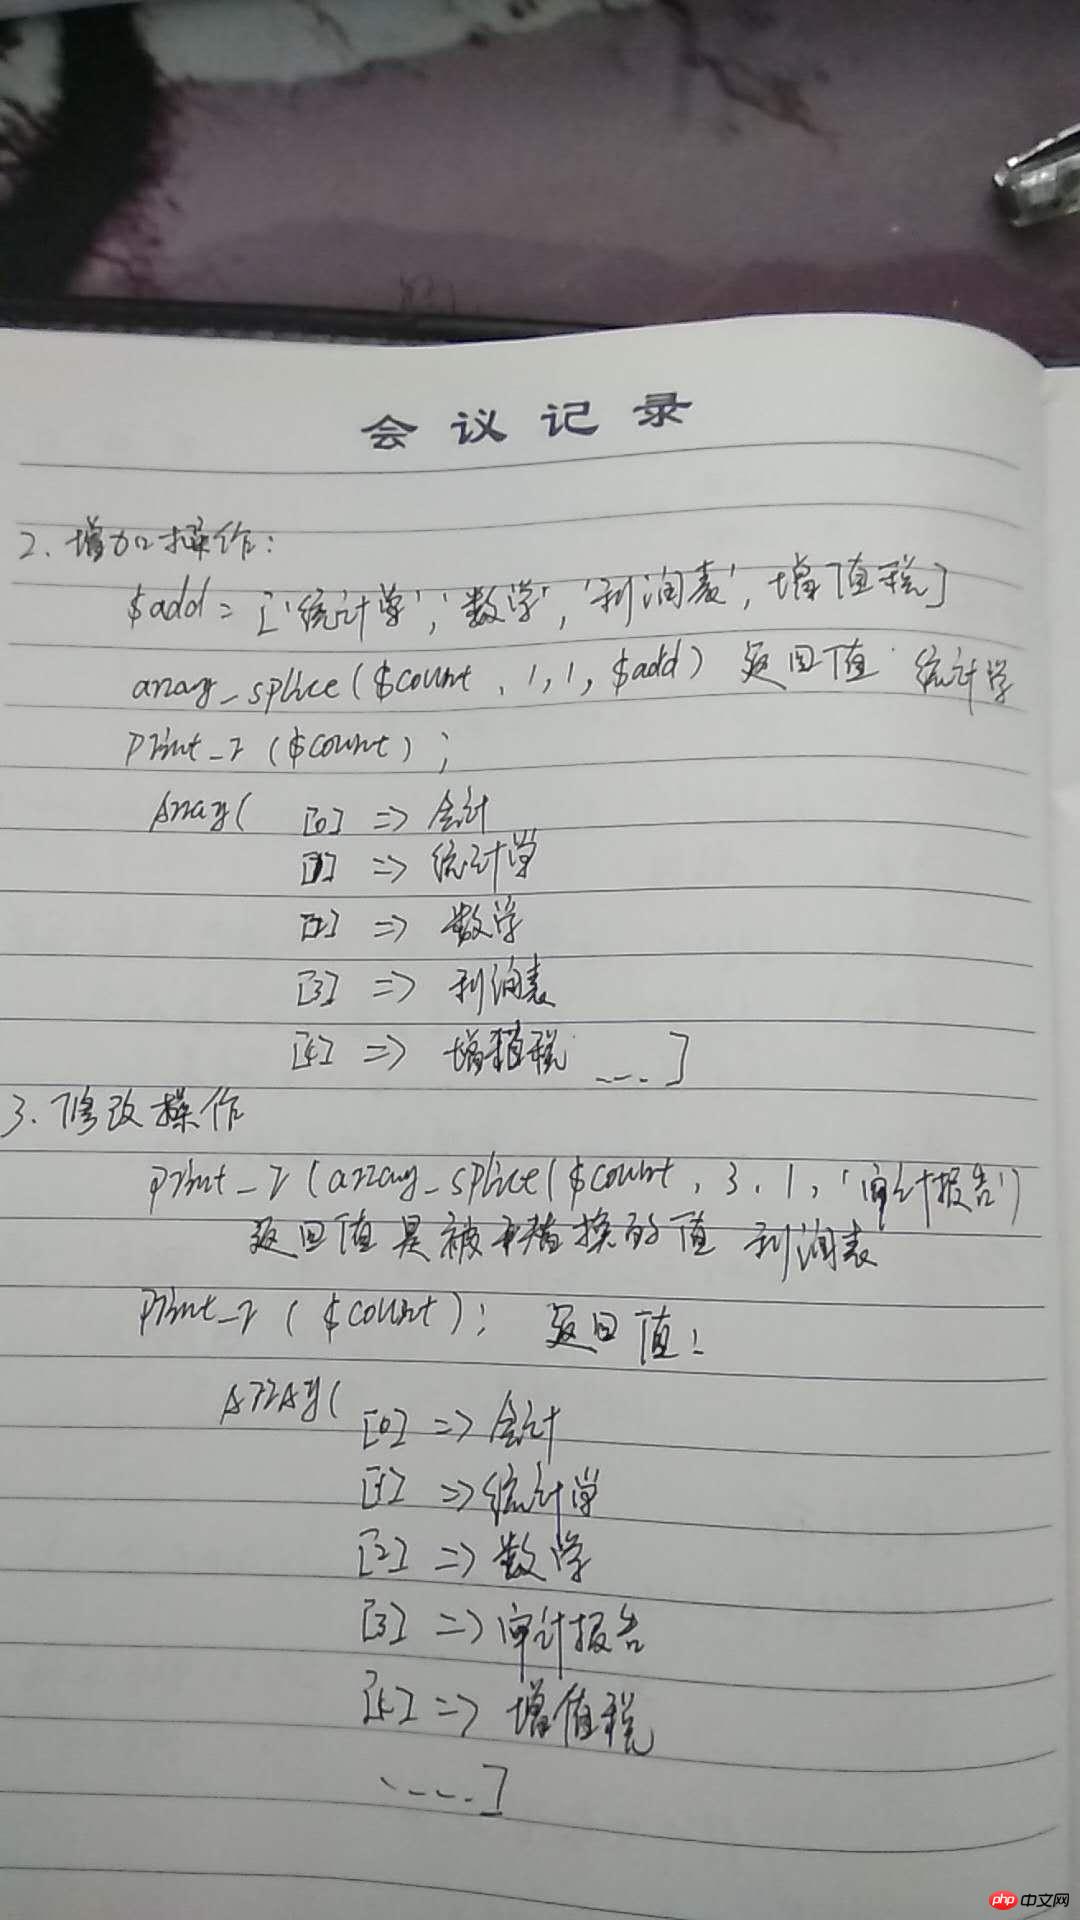 会议记录
2. 增加操作:
$add = ['统计学','数学','利润表',增值税]
array_splice($count,1,1,$add) 返回值 统计学
print_r($count);
Array( [0] => 会计
[1] => 统计学
[2] => 数学
[3] => 利润表
[4] => 增值税 ....]
3. 修改操作
print_r(array_splice($count,3,1,'审计报告')
返回值是被替换的值 利润表
print_r($count); 返回值:
ARRAy( [0] => 会计
[1] => 统计学
[2] => 数学
[3] => 审计报告
[4] => 增值税
.....]
php中文网